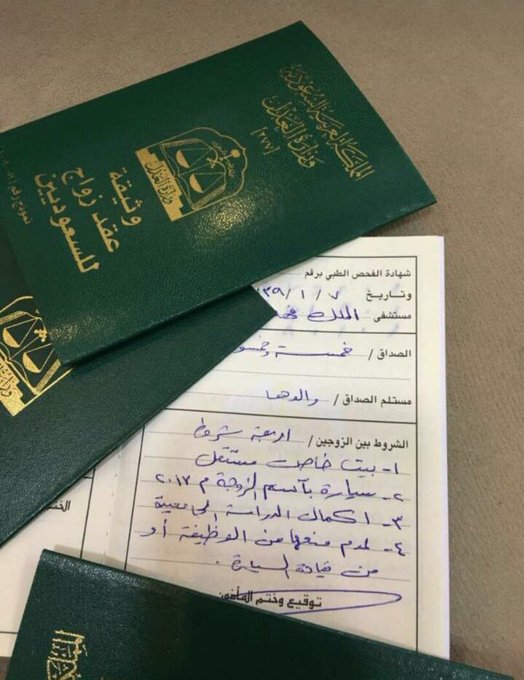 المملكة العربية السعودية
وزارة العدل
(٢٧٧)
وزارة العدل
وثيقة
عقد زواج
للسعوديين
نموذج رقم
شهادة الفحص الطبي برقم
وتاريخ ٧ / ١ / ٣٩
مستشفى الملك
الصداق / خمسة وخمسو
مستلم الصداق / والدها
الشروط بين الزوجين / اربعة شروط
١- بيت خاص مستقل
٢- سيارة بآسم الزوجة م ٢٠١٣
٣- اكمال الدراسة الجامعية
٤- لعدم منعها من الوظيفة أو
من قيادة السيارة .
توقيع وختم المأذون